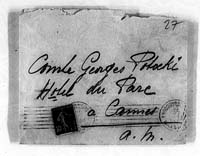 27
Comte Georges Potocki
Hotel du Parc
a Cannes
a. m.